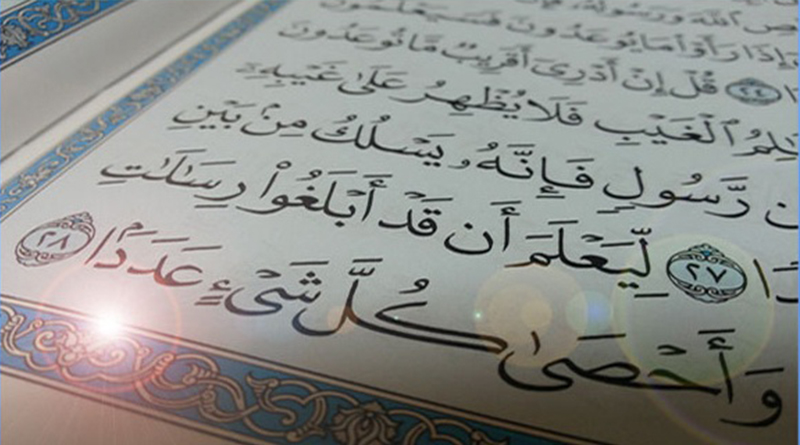 صِ ٱللَّهَ وَرَسُولَهُۥ
إِذَا رَأَوْا۟ مَا يُوعَدُونَ فَسَيَعْلَمُونَ
ا ٢٤ قُلْ إِنْ أَدْرِىٓ أَقَرِيبٌ مَّا تُوعَدُونَ
ٰلِمُ ٱلْغَيْبِ فَلَا يُظْهِرُ عَلَىٰ غَيْبِهِۦٓ
ن رَّسُولٍ فَإِنَّهُۥ يَسْلُكُ مِنۢ بَيْنِ
دًا ٢٧ لِّيَعْلَمَ أَن قَدْ أَبْلَغُوا۟ رِسَٰلَٰتِ
وَأَحْصَىٰ كُلَّ شَىْءٍ عَدَدَۢا ٢٨